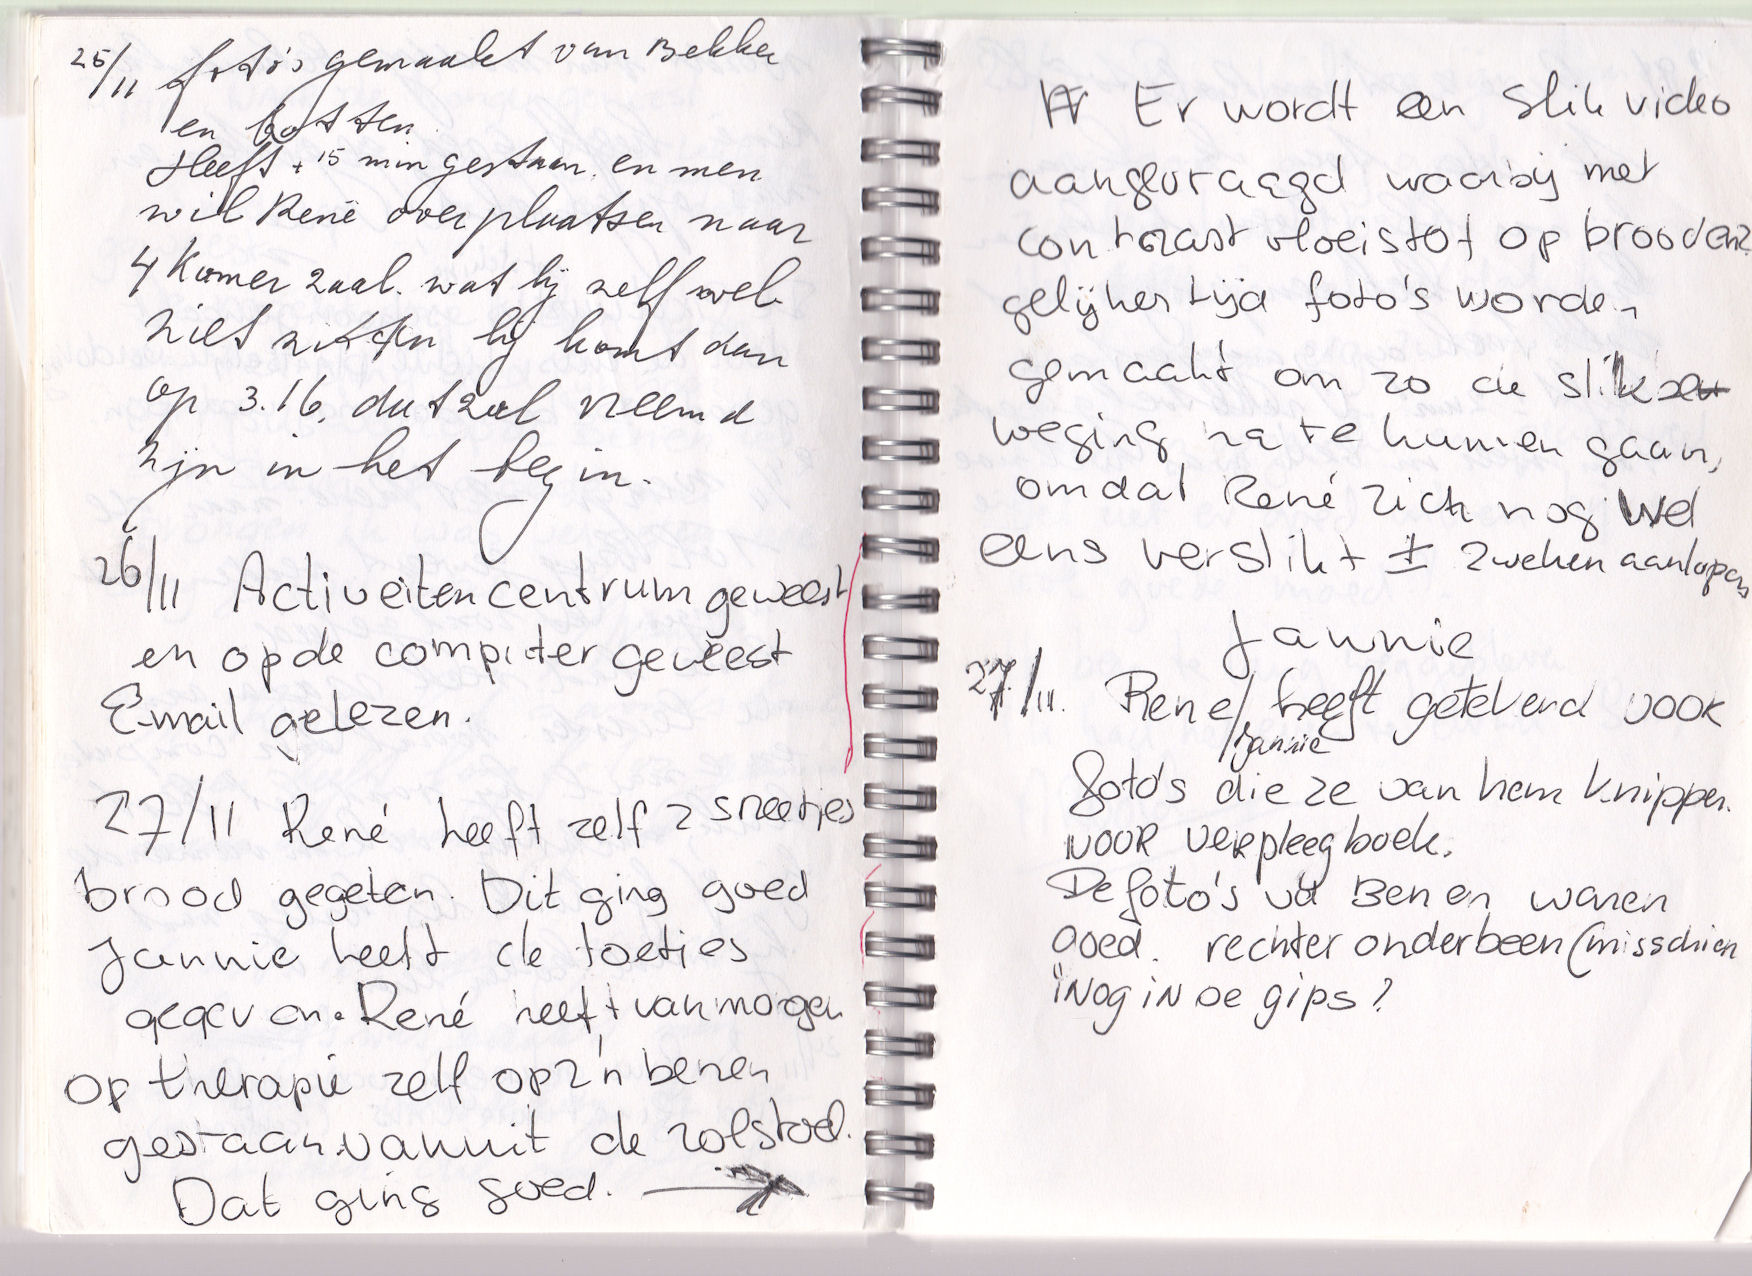 25/11 foto's gemaakt van Bekken
en botten.
Heeft ± 15 min gestaan. en men
wil René overplaatsen naar
4 Kamer zaal. wat hij zelf wel
ziet zitten hij komt dan
op 3.16. dat zal vreemd
zijn in het begin.
26/11 Activeitencentrum geweest
en op de computer geweest
E-mail gelezen.
27/11 René heeft zelf 2 sneetjes
brood gegeten. Dit ging goed
Jannie heeft de toetjes
gegeven. René heeft vanmorgen
op therapie zelf op z'n benen
gestaan vanuit de rolstoel.
Dat ging goed.
Er wordt een Slik video
aangevraagd waarbij met
contrast vloeistof op brood en
gelijkertijd foto's worden
gemaakt om zo de slikbe
weging na te kunnen gaan,
omdat René zich nog wel
eens verslikt ± 2 weken aanlopen
Jannie
27/11. Rene/ heeft geteverd voor
Jannie
foto's die ze van hem Knippen.
voor verpleegboek.
De foto's vd Benen waren
goed. rechter onderbeen (misschien
nog in de gips?